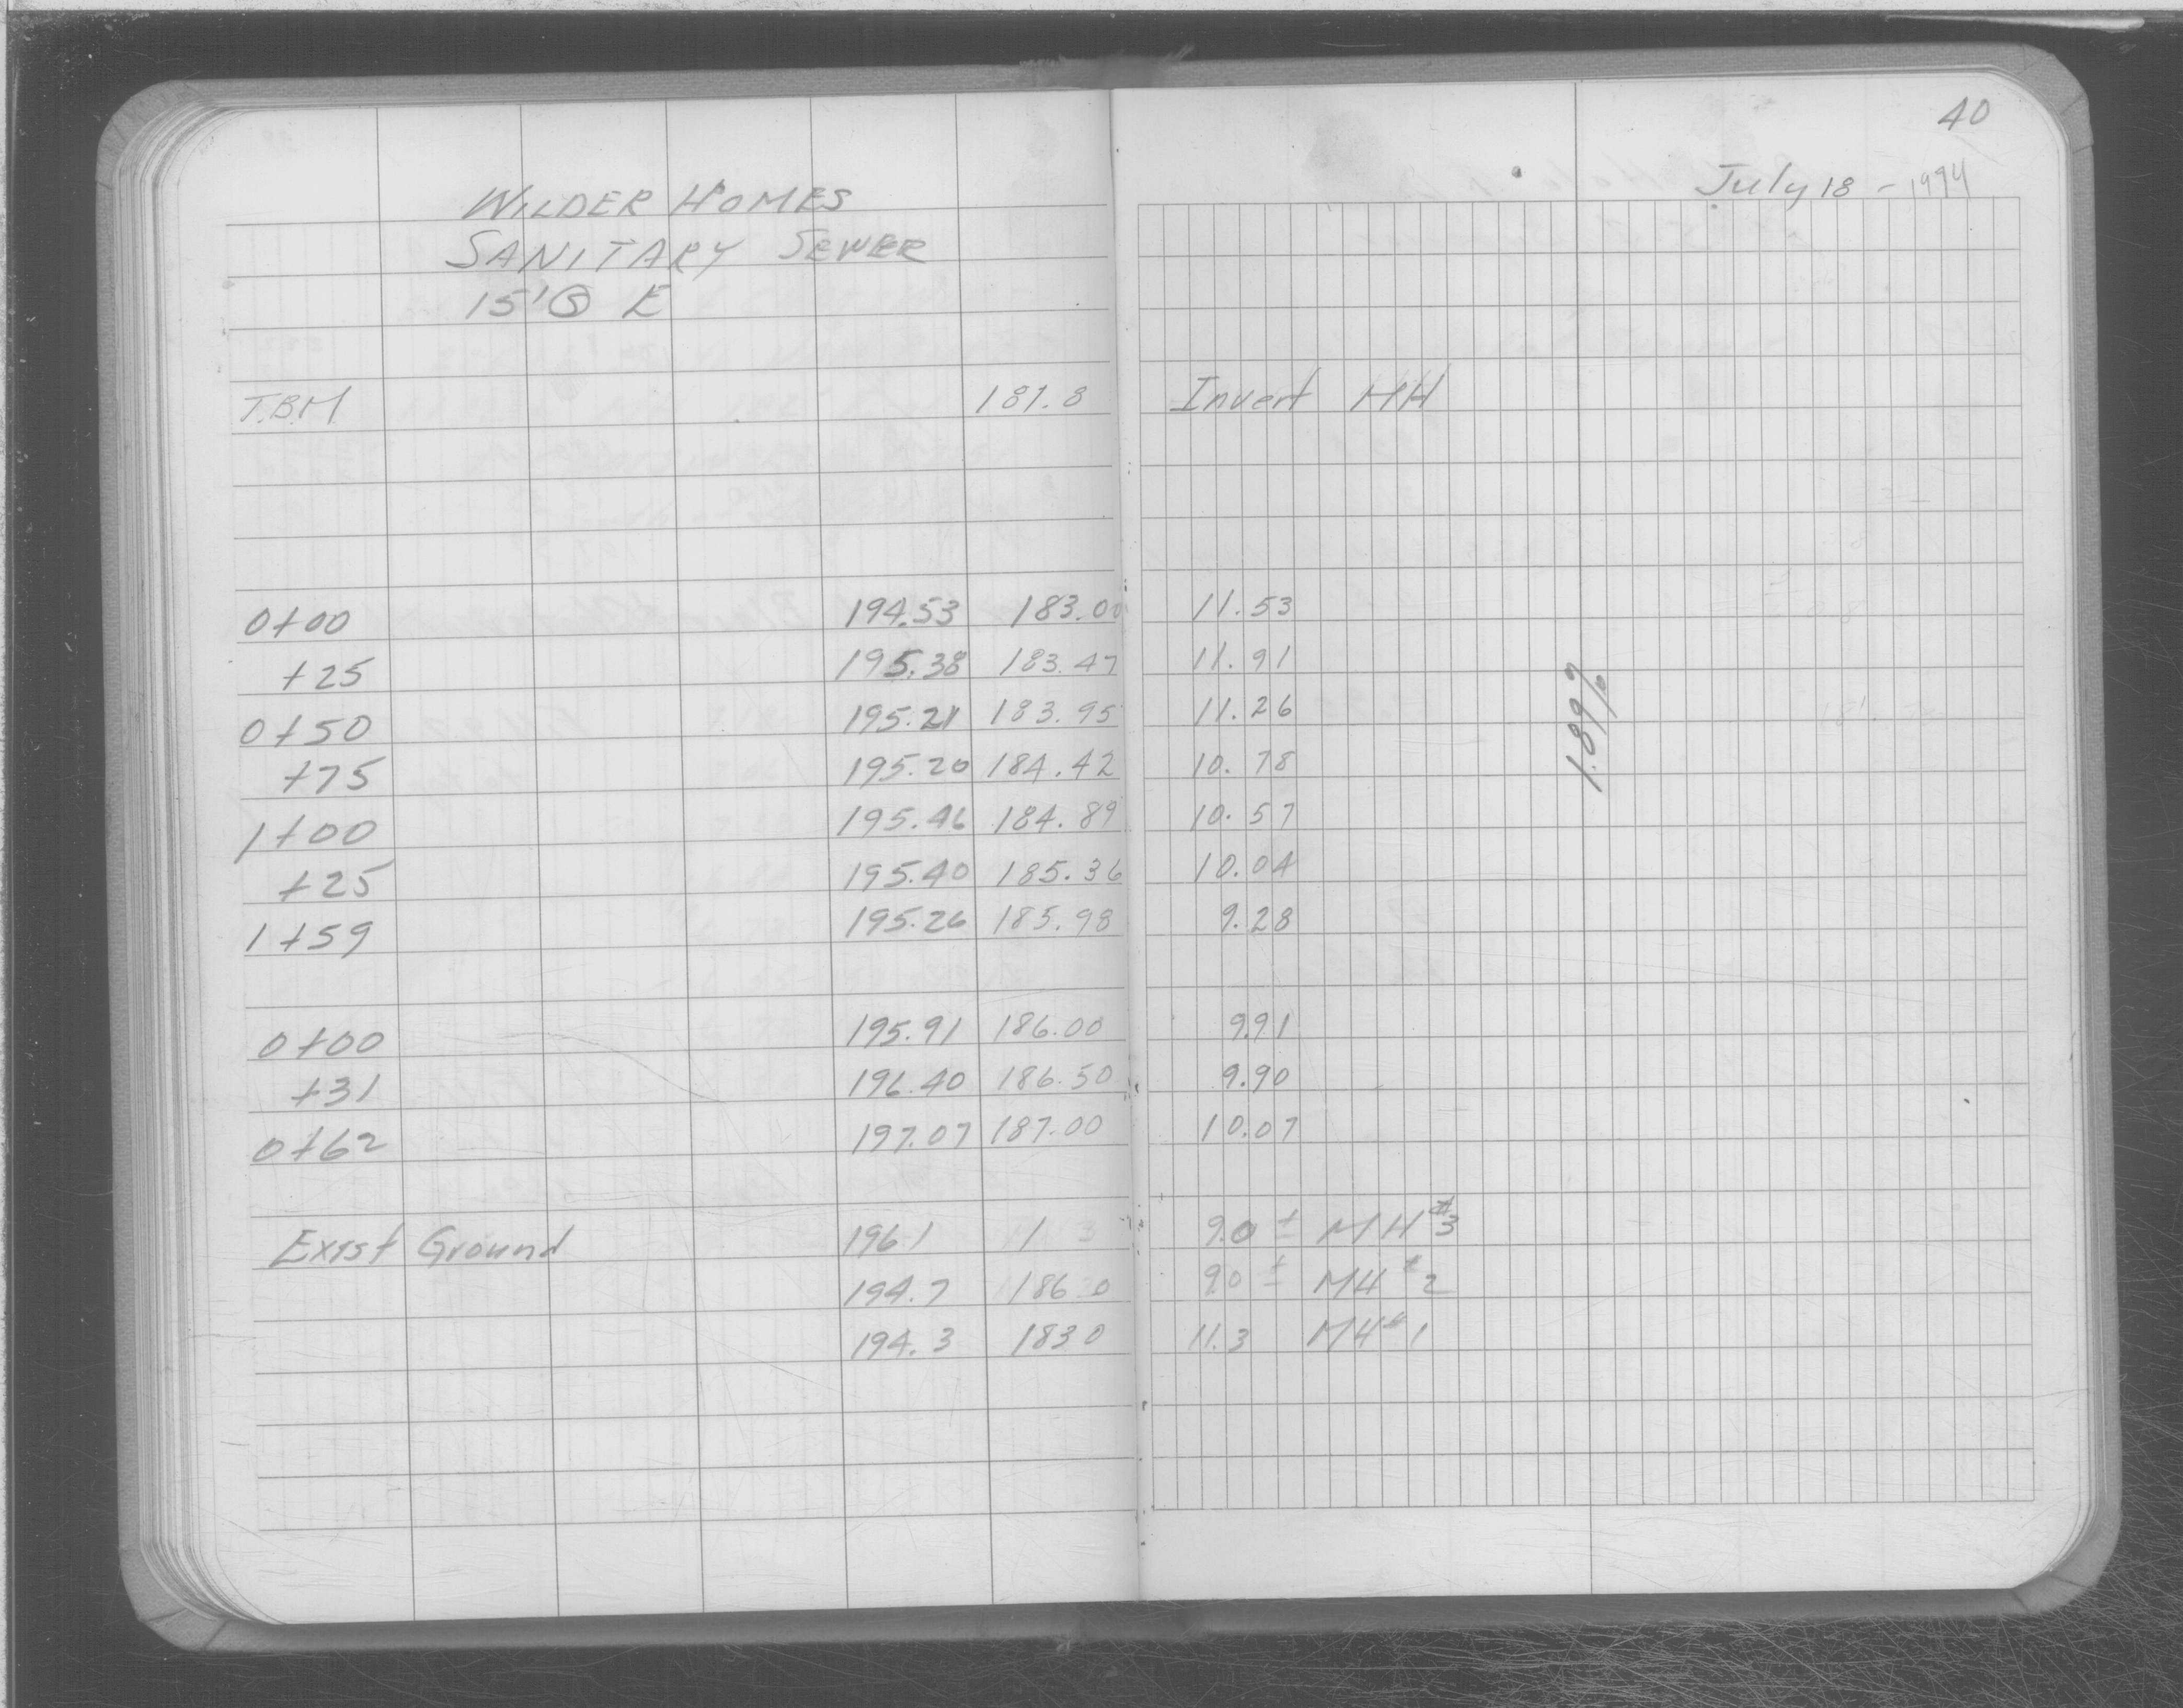 40
July 18 - 1994
WILDER HOMES
SANITARY SEWER
15' Ⓢ E
T.B.M. 181.8 Invert MH
0+00 194.53 183.00 11.53
+25 195.38 183.47 11.91
0+50 195.21 183.95 11.26
+75 195.20 184.42 10.78
1+00 195.46 184.89 10.57
+25 195.40 185.36 10.04
1+59 195.26 185.98 9.28
1.89%
0+00 195.91 186.00 9.91
+31 196.40 186.50 9.90
0+62 197.07 187.00 10.07
Exist Ground 196.1 9.0 ± MH #3
194.7 186.0 9.0 ± MH #2
194.3 183.0 11.3 MH #1